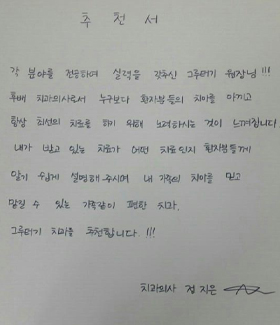 추천서
각 분야를 전공하여 실력을 갖추신 그루터기 원장님 !!!
후배 치과의사로서 누구보다 환자분들의 치아를 아끼고
항상 최선의 치료를 하기 위해 노력하시는 것이 느껴집니다.
내가 받고 있는 치료가 어떤 치료인지 환자분들께
알기 쉽게 설명해주시며 내 가족의 치아를 믿고
맡길 수 있는 가족같이 편한 치과.
그루터기 치과를 추천합니다 !!!
치과의사 정지은